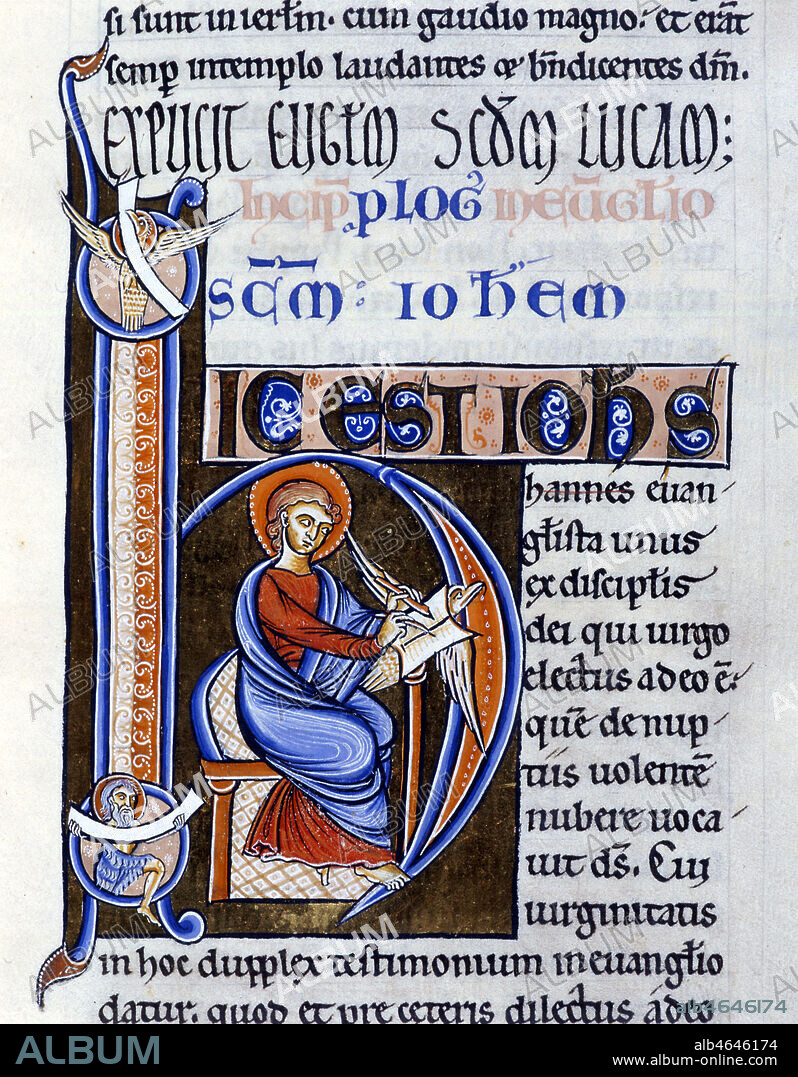 si sunt in ierl̅m. cum gaudio magno. et erāt
semp̱ in templo laudantes & bn̅dicentes dm̅.
EXPLICIT EUG̅LM SCD̅M LUCAM;
Incip̅ PLOG̅ IN EUG̅LIO
SCD̅M: IOHEM
HIC EST IOHS
hannes euan-
gl̅ista unus
ex discipl̅is
dei qui uirgo
electus a deo ē.
quē de nup-
tiis uolentē
nubere uoca-
uit ds̅. Cui
uirginitatis
in hoc dupplex testimonium in euangl̅io
datur. quod et pre ceteris dilectus a deo
alb4646174
ALBUM
alb4646174
www.album-online.com